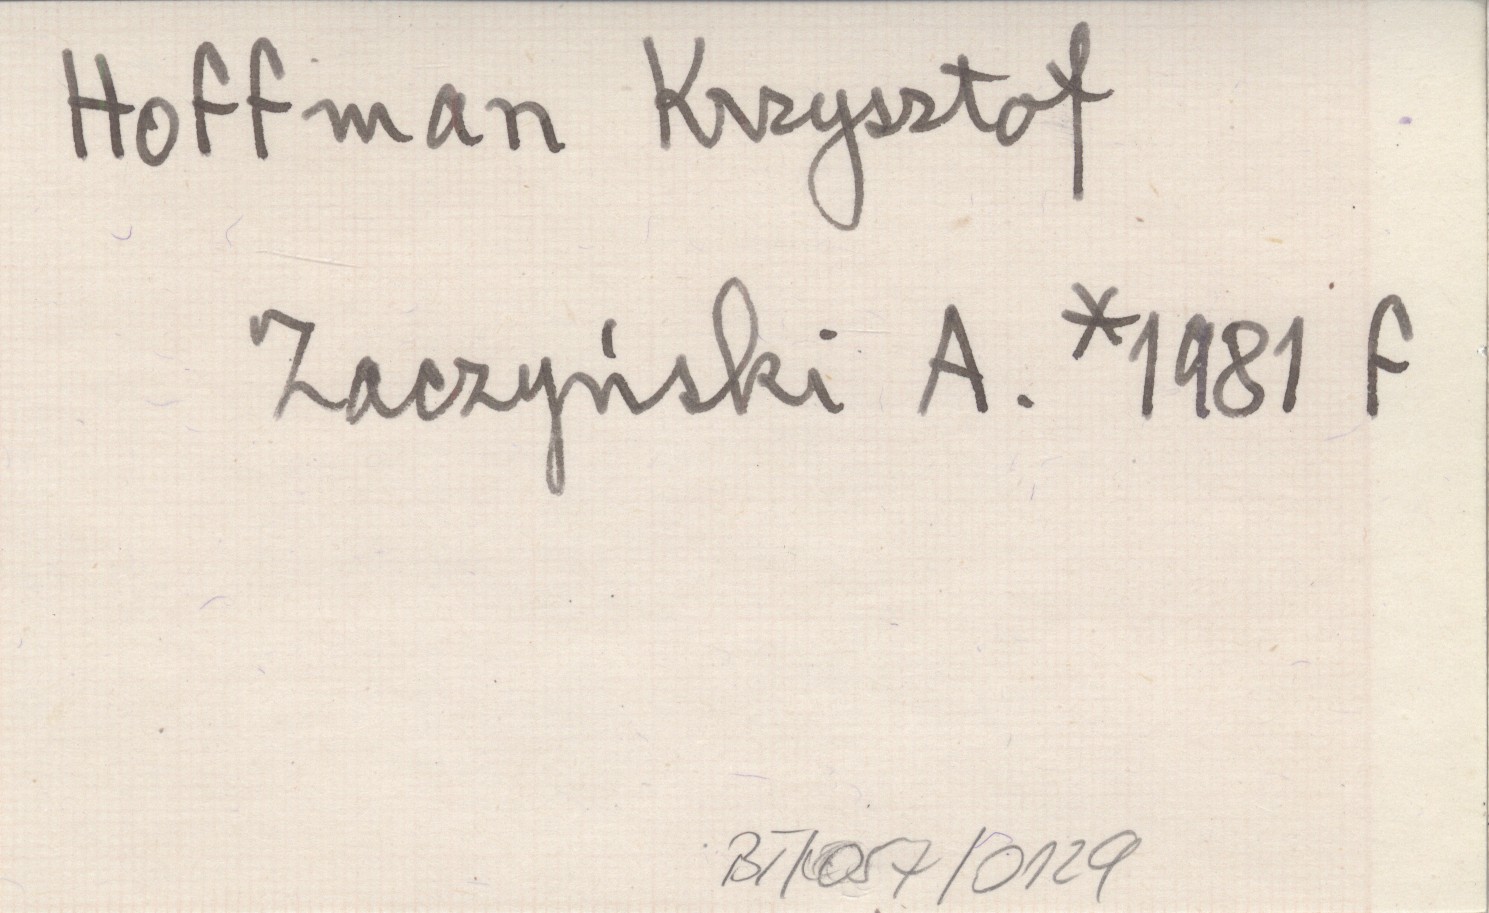 Hoffman Krzysztof
Zaczyński A. *1981 F
BT/057/0129